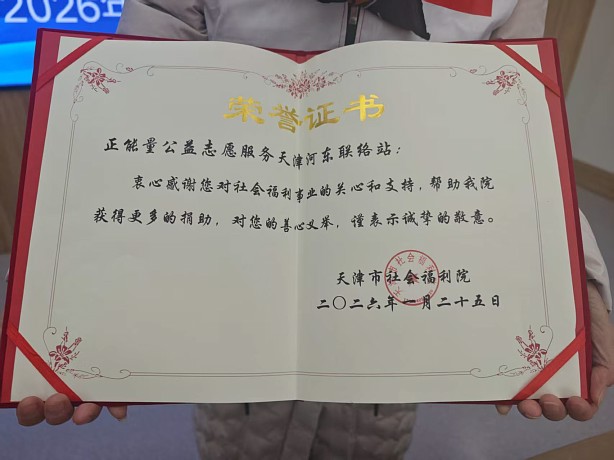 2026年
荣誉证书
正能量公益志愿服务天津河东联络站：
衷心感谢您对社会福利事业的关心和支持，帮助我院
获得更多的捐助，对您的善心义举，谨表示诚挚的敬意。
天津市社会福利院
二〇二六年一月二十五日